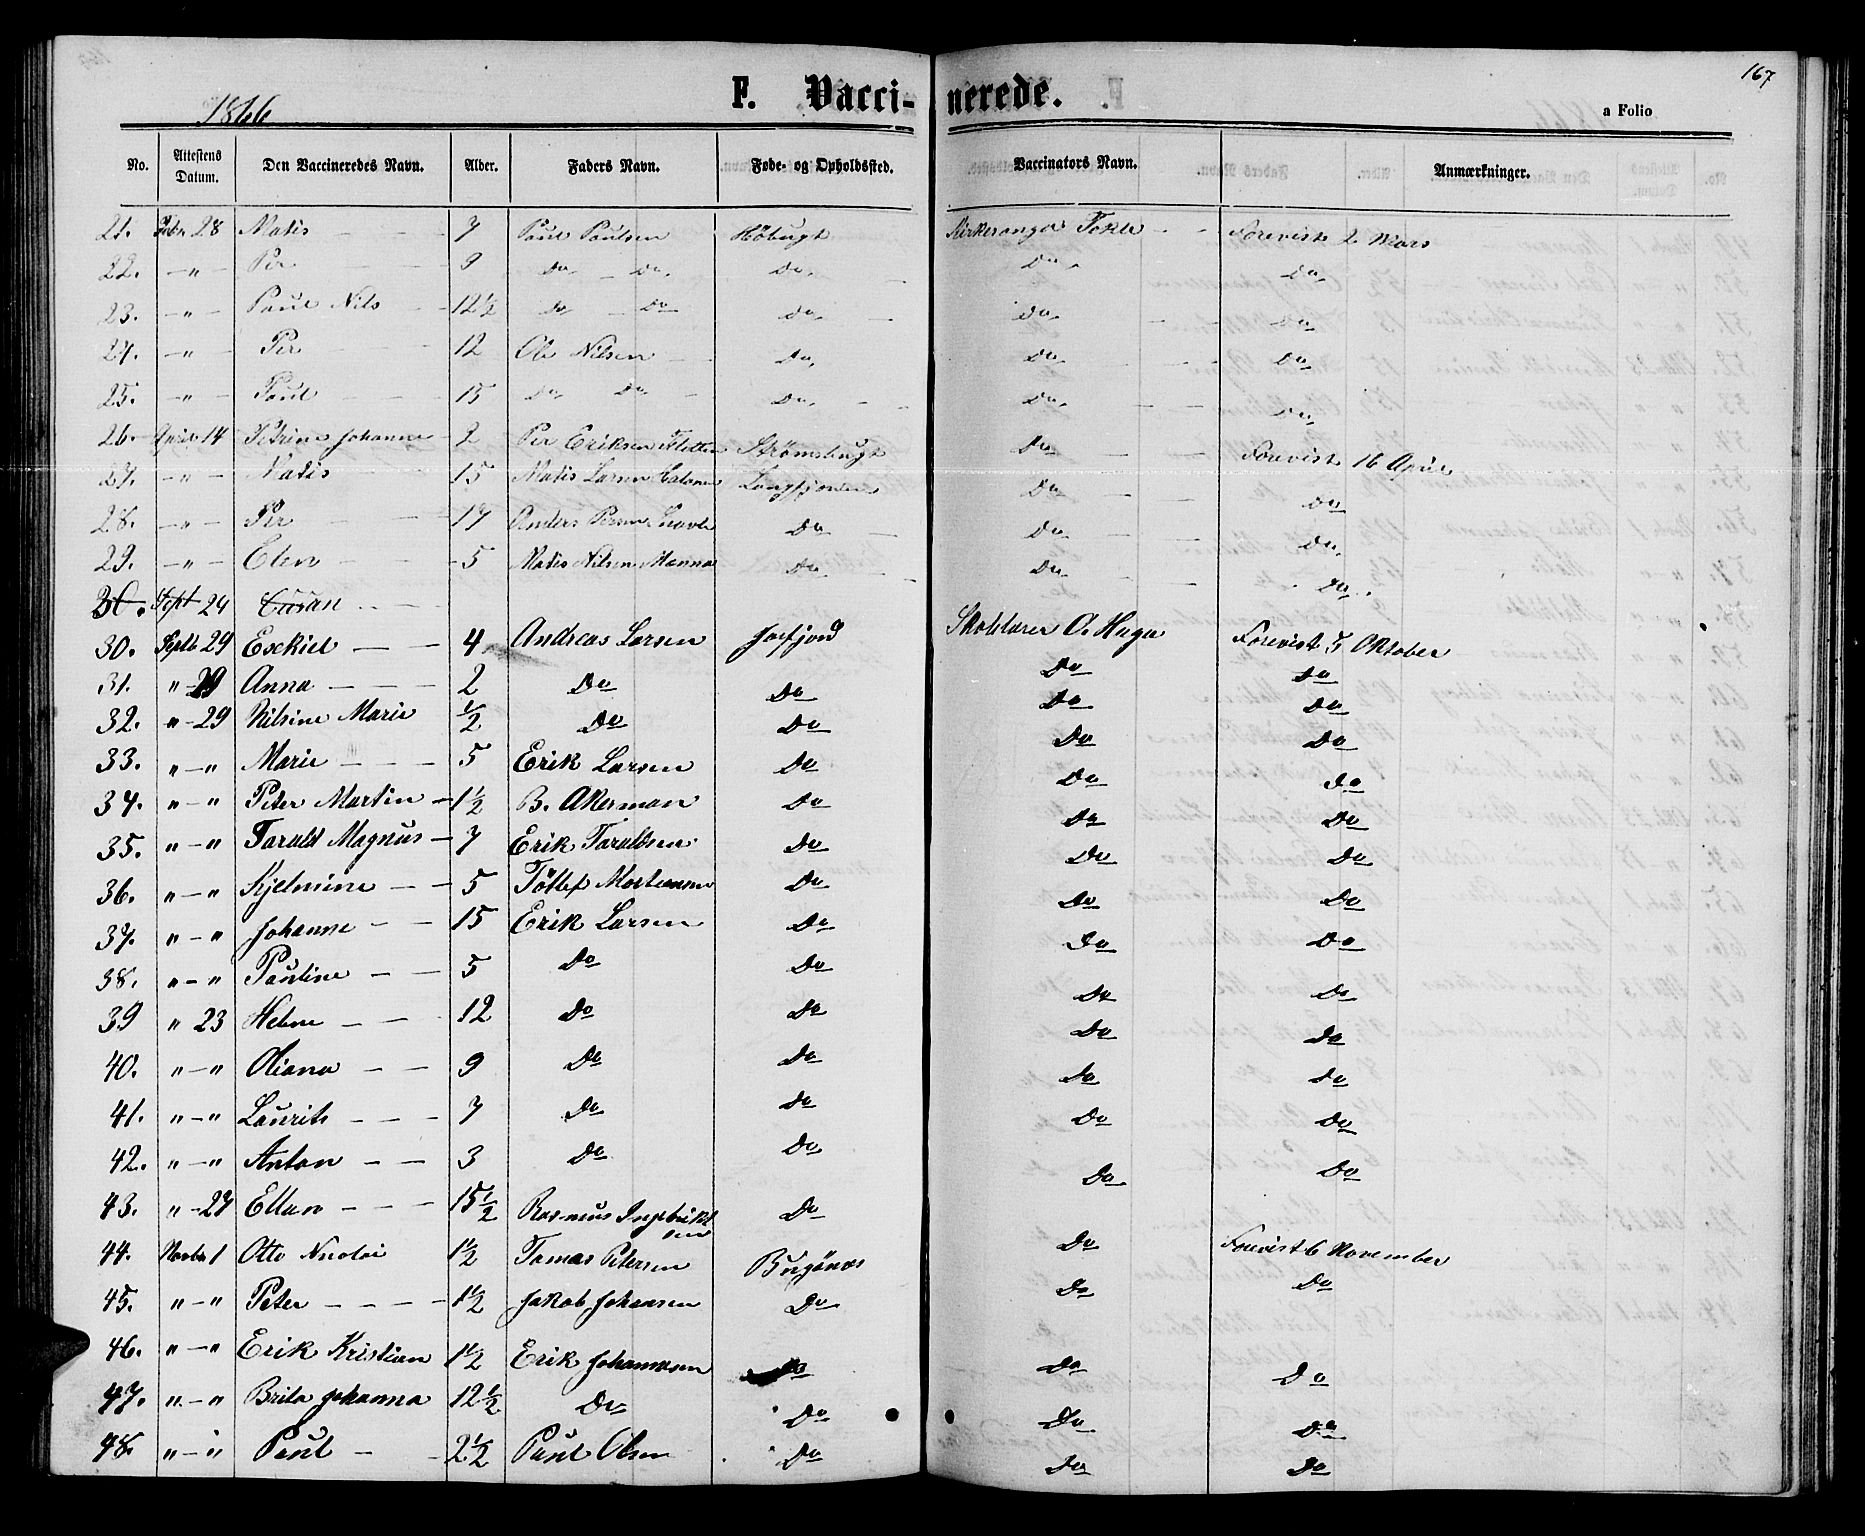 167
1866 F. Vaccinerede. a Folio
No. Attestens Datum. Den Vaccineredes Navn. Alder. Faders Navn. Føde- og Opholdssted. Vaccinators Navn. Anmærkninger.
21. Febr 28 Matis 7 Paul Paulsen Høbugt Kirkesanger Tokle Forevist 2 Mars
22. -"- Per 9 Do Do Do Do Do
23. -"- Paul Nils 12 1/2 Do Do Do Do Do
24. -"- Per 12 Ole Nilsen Do Do Do
25. -"- Paul 15 Do Do Do Do Do
26. April 14 Petrine Johanne 2 Per Eriksen Fletten Strømsbugt Do Forevist 16 April
27. -"- Matis 15 Matis Larsen Langfjorden Do Do
28. -"- Per 14 Anders Persen Do Do Do
29. -"- Elen 5 Matis Nilsen Manna Do Do Do
30. Sept 24
30. Septb 29 Esekiel 4 Andreas Larsen Jarfjord Skolelærer O. Haga Forevist 5 Oktober
31. " 29 Anna 2 Do Do Do Do
32. " 29 Nilsine Marie 1/2 Do Do Do Do
33. "-" Marie 5 Erik Larsen Do Do Do
34. "-" Peter Martin 1 1/2 B. Akerman Do Do Do
35. "-" Tarald Magnus 7 Erik Taraldsen Do Do Do
36. "-" Hjelmine 5 Tøllef Mortensen Do Do Do
37. "-" Johanne 15 Erik Larsen Do Do Do
38. "-" Pauline 5 Do Do Do Do
39 " 23 Helene 12 Do Do Do Do
40. "-" Oliana 9 Do Do Do Do
41. "-" Laurits 7 Do Do Do Do
42. "-" Anton 3 Do Do Do Do
43. "-27 Ellen 15 1/2 Rasmus Ingebrikt
sen Do Do Do
44. Novbr 1 Otto Nicolai 1 1/2 Tomas Petersen Bugønes Do Forevist 6 November
45. "-" Peter 1 1/2 Jakob Johansen Do Do Do
46. "-" Erik Kristian 1 1/2 Erik Johannesen Do Do Do
47. "-" Brita Johanna 12 1/2 Do Do Do Do
48. "-" Paul 2 1/2 Paul Olsen Do Do Do